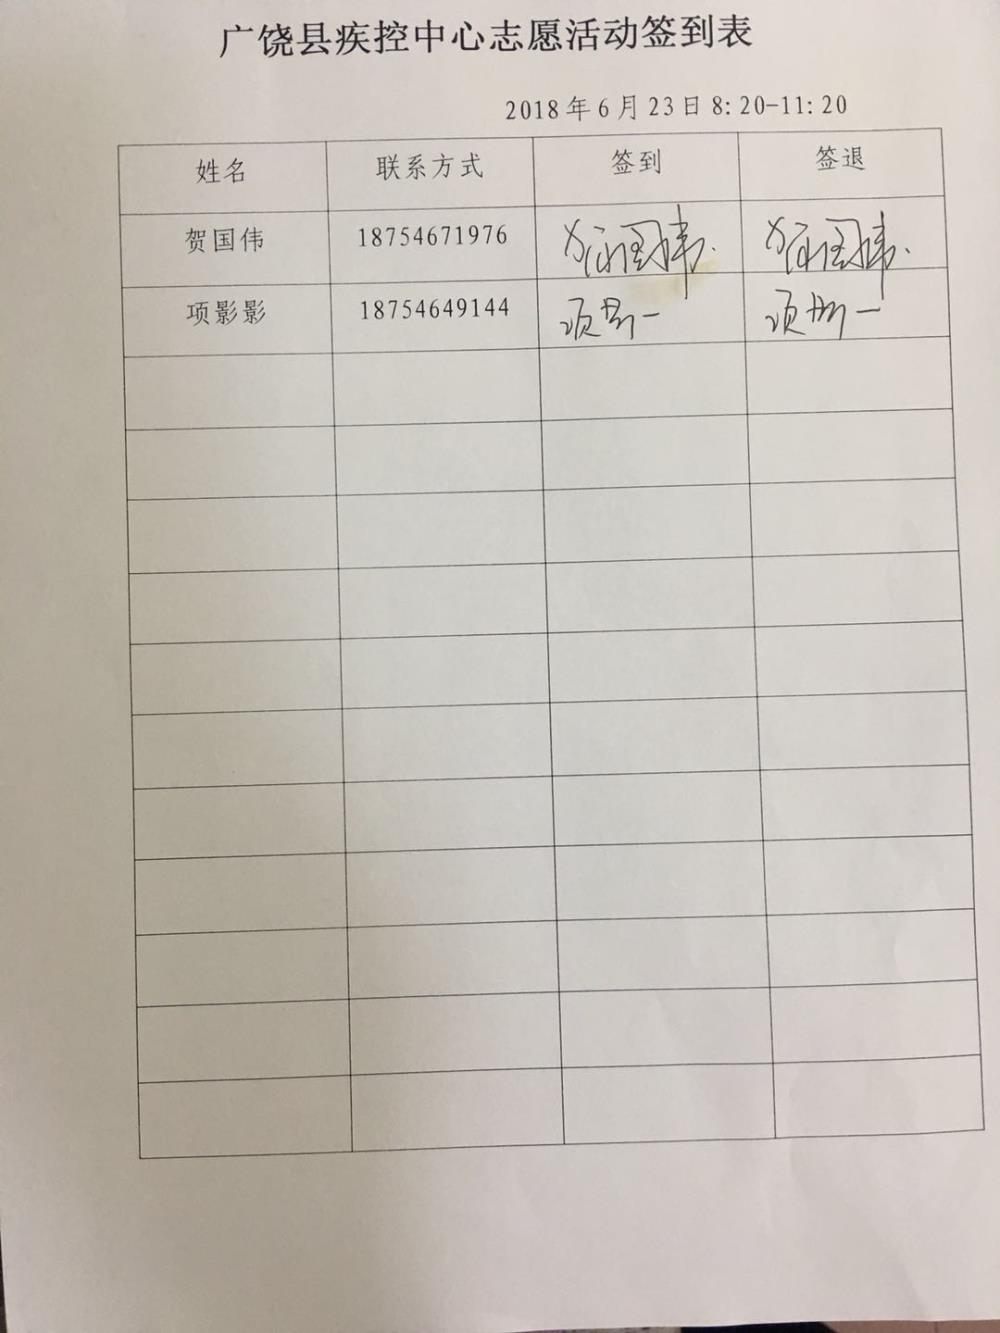 广饶县疾控中心志愿活动签到表
2018年6月23日8:20-11:20
姓名 联系方式 签到 签退
贺国伟 18754671976 贺国伟. 贺国伟.
项影影 18754649144 项影一 项影一